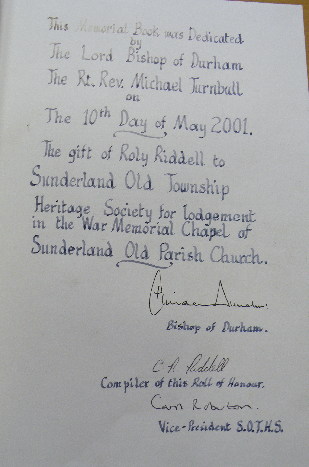 This Memorial Book was Dedicated
by
The Lord Bishop of Durham
The Rt. Rev. Michael Turnbull
on
The 10th Day of May 2001.
The gift of Roly Riddell to
Sunderland Old Township
Heritage Society for lodgement
in the War Memorial Chapel of
Sunderland Old Parish Church.
Bishop of Durham.
C A Riddell
Compiler of this Roll of Honour.
Vice-President S.O.T.H.S.